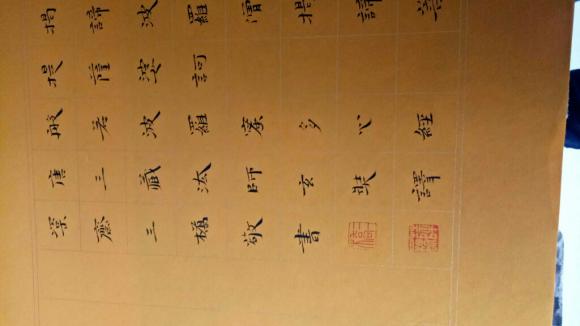 揭諦波羅僧揭諦菩
提薩婆訶
般若波羅蜜多心經
唐三藏法師玄奘譯
齋三橋敬書